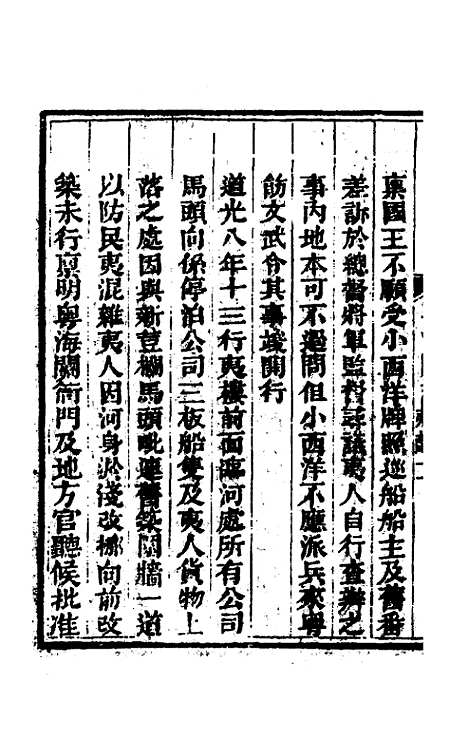 稟國王不願受小西洋牌照巡船船主及舊番
差訴於總督將軍監督議夷人自行查辦之
事內地本可不過問但小西洋不應派兵來粵
飭文武令其事竣開行
道光八年十三行夷樓前面臨河處所有公司
馬頭向係停泊公司三板船隻及夷人貨物上
落之處因與新荳欄馬頭毗連舊築關牆一道
以防民夷混雜夷人因河身淤淺改挪向前改
築未行稟明粵海關衙門及地方官聽候批准